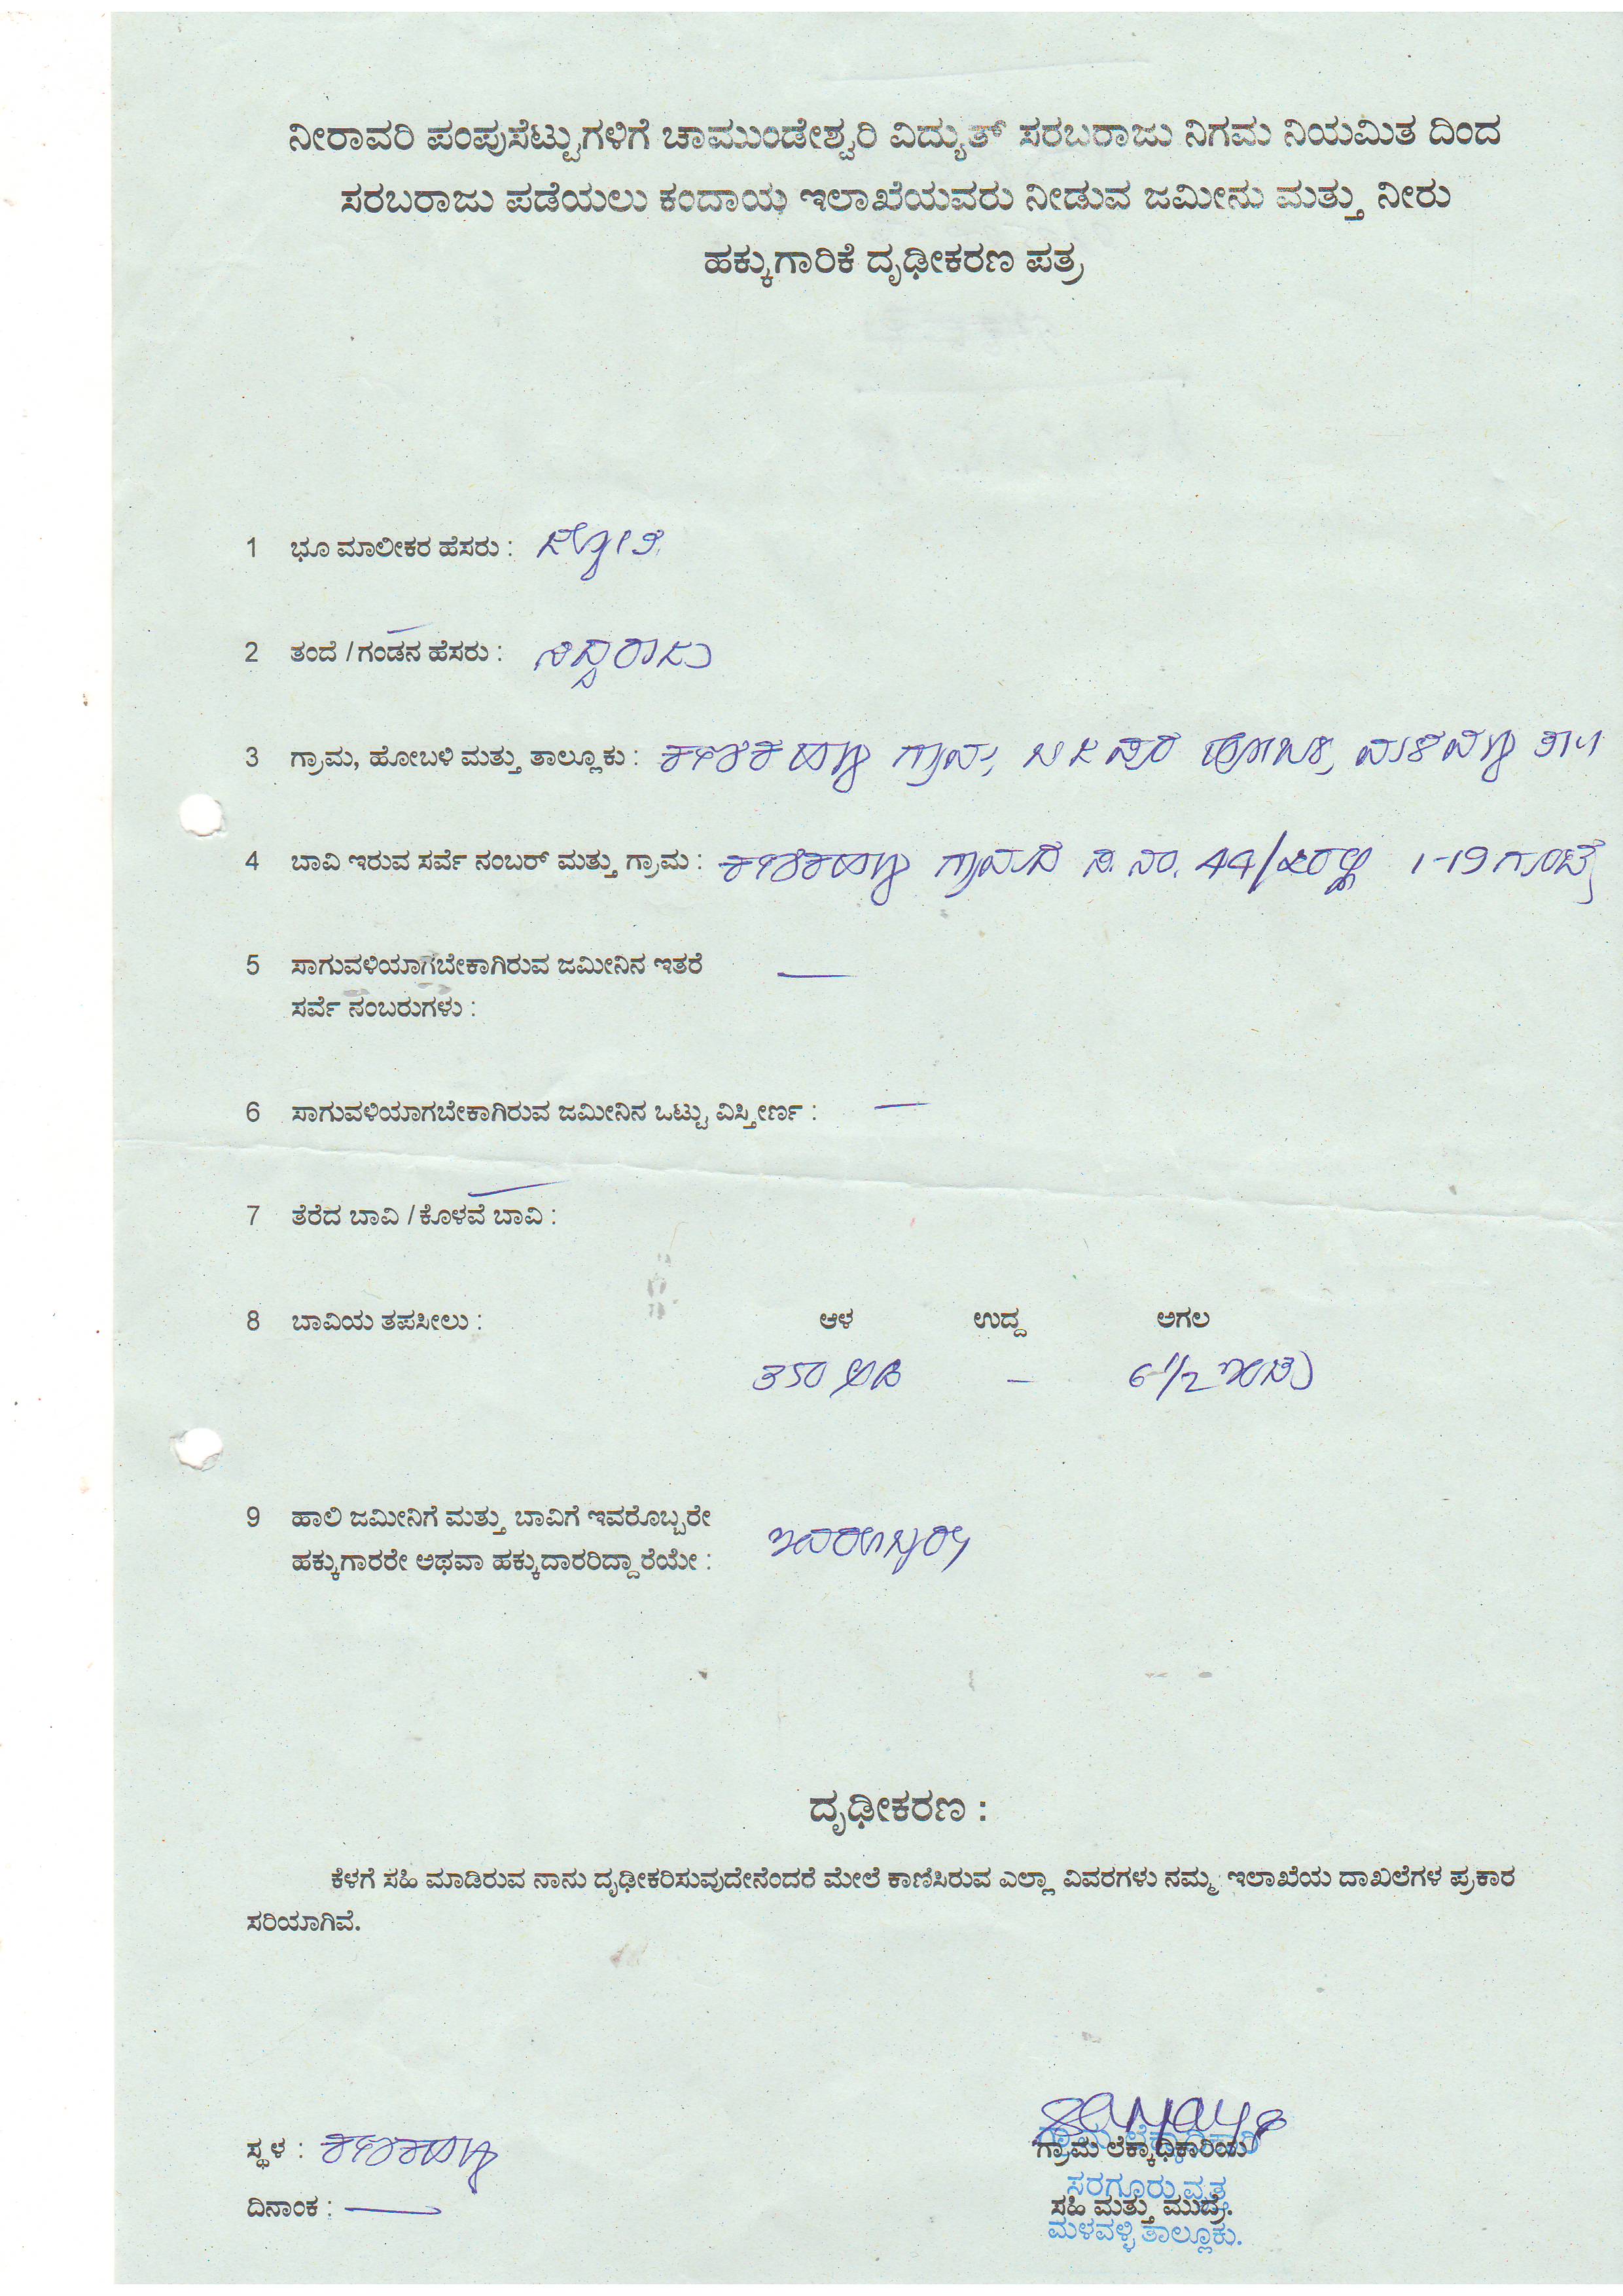 ನೀರಾವರಿ ಪಂಪುಸೆಟ್ಟುಗಳಿಗೆ ಚಾಮುಂಡೇಶ್ವರಿ ವಿದ್ಯುತ್ ಸರಬರಾಜು ನಿಗಮ ನಿಯಮಿತ ದಿಂದ
ಸರಬರಾಜು ಪಡೆಯಲು ಕಂದಾಯ ಇಲಾಖೆಯವರು ನೀಡುವ ಜಮೀನು ಮತ್ತು ನೀರು
ಹಕ್ಕುಗಾರಿಕೆ ದೃಢೀಕರಣ ಪತ್ರ
1 ಭೂ ಮಾಲೀಕರ ಹೆಸರು : ಜ್ಯೋತಿ
2 ತಂದೆ / ಗಂಡನ ಹೆಸರು : ಸಿದ್ದರಾಜು
3 ಗ್ರಾಮ, ಹೋಬಳಿ ಮತ್ತು ತಾಲ್ಲೂಕು : ಗ್ರಾಮ, ಹೋಬಳಿ, ಮಳವಳ್ಳಿ ತಾ||
4 ಬಾವಿ ಇರುವ ಸರ್ವೆ ನಂಬರ್ ಮತ್ತು ಗ್ರಾಮ : ಗ್ರಾಮದ ಸ. ನಂ. 44/ 1-19 ಗುಂಟೆ
5 ಸಾಗುವಳಿಯಾಗಬೇಕಾಗಿರುವ ಜಮೀನಿನ ಇತರೆ —
ಸರ್ವೆ ನಂಬರುಗಳು :
6 ಸಾಗುವಳಿಯಾಗಬೇಕಾಗಿರುವ ಜಮೀನಿನ ಒಟ್ಟು ವಿಸ್ತೀರ್ಣ : —
7 ತೆರೆದ ಬಾವಿ / ಕೊಳವೆ ಬಾವಿ :
8 ಬಾವಿಯ ತಪಸೀಲು : ಆಳ ಉದ್ದ ಅಗಲ
350 ಅಡಿ — 6 1/2 ಇಂಚು
9 ಹಾಲಿ ಜಮೀನಿಗೆ ಮತ್ತು ಬಾವಿಗೆ ಇವರೊಬ್ಬರೇ
ಹಕ್ಕುಗಾರರೇ ಅಥವಾ ಹಕ್ಕುದಾರರಿದ್ದಾರೆಯೇ : ಇವರೊಬ್ಬರೇ
ದೃಢೀಕರಣ :
ಕೆಳಗೆ ಸಹಿ ಮಾಡಿರುವ ನಾನು ದೃಢೀಕರಿಸುವುದೇನೆಂದರೆ ಮೇಲೆ ಕಾಣಿಸಿರುವ ಎಲ್ಲಾ ವಿವರಗಳು ನಮ್ಮ ಇಲಾಖೆಯ ದಾಖಲೆಗಳ ಪ್ರಕಾರ
ಸರಿಯಾಗಿವೆ.
ಸ್ಥಳ :
ಗ್ರಾಮ ಲೆಕ್ಕಾಧಿಕಾರಿಯ
ಸರಗೂರು ವೃತ್ತ
ದಿನಾಂಕ : —
ಸಹಿ ಮತ್ತು ಮುದ್ರೆ.
ಮಳವಳ್ಳಿ ತಾಲ್ಲೂಕು.